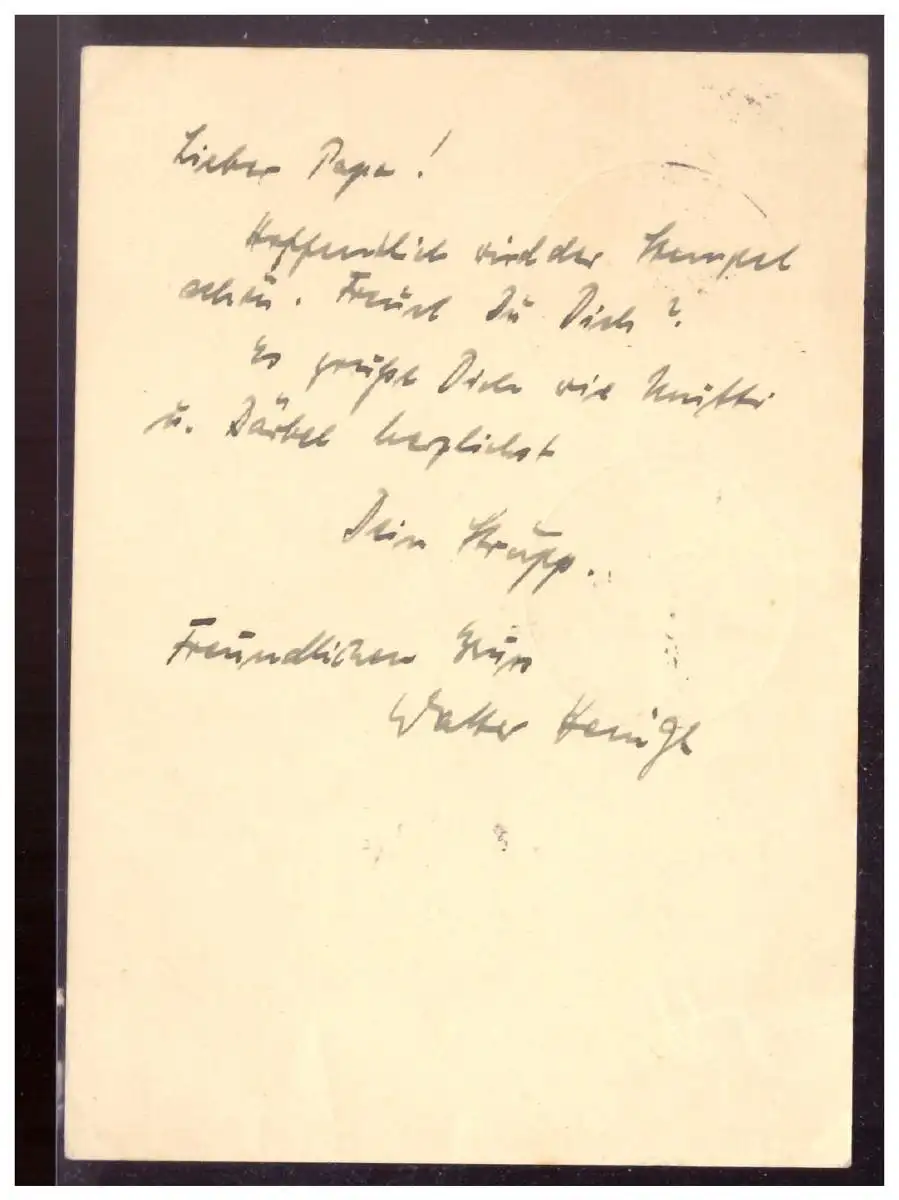 Lieber Papa!
Hoffentlich wird der Stempel
schön. Freust Du Dich?
Es grüßt Dich wie Mutti
u. Bärbel herzlichst
Dein Strupp.
Freundlichen Gruss
Walter